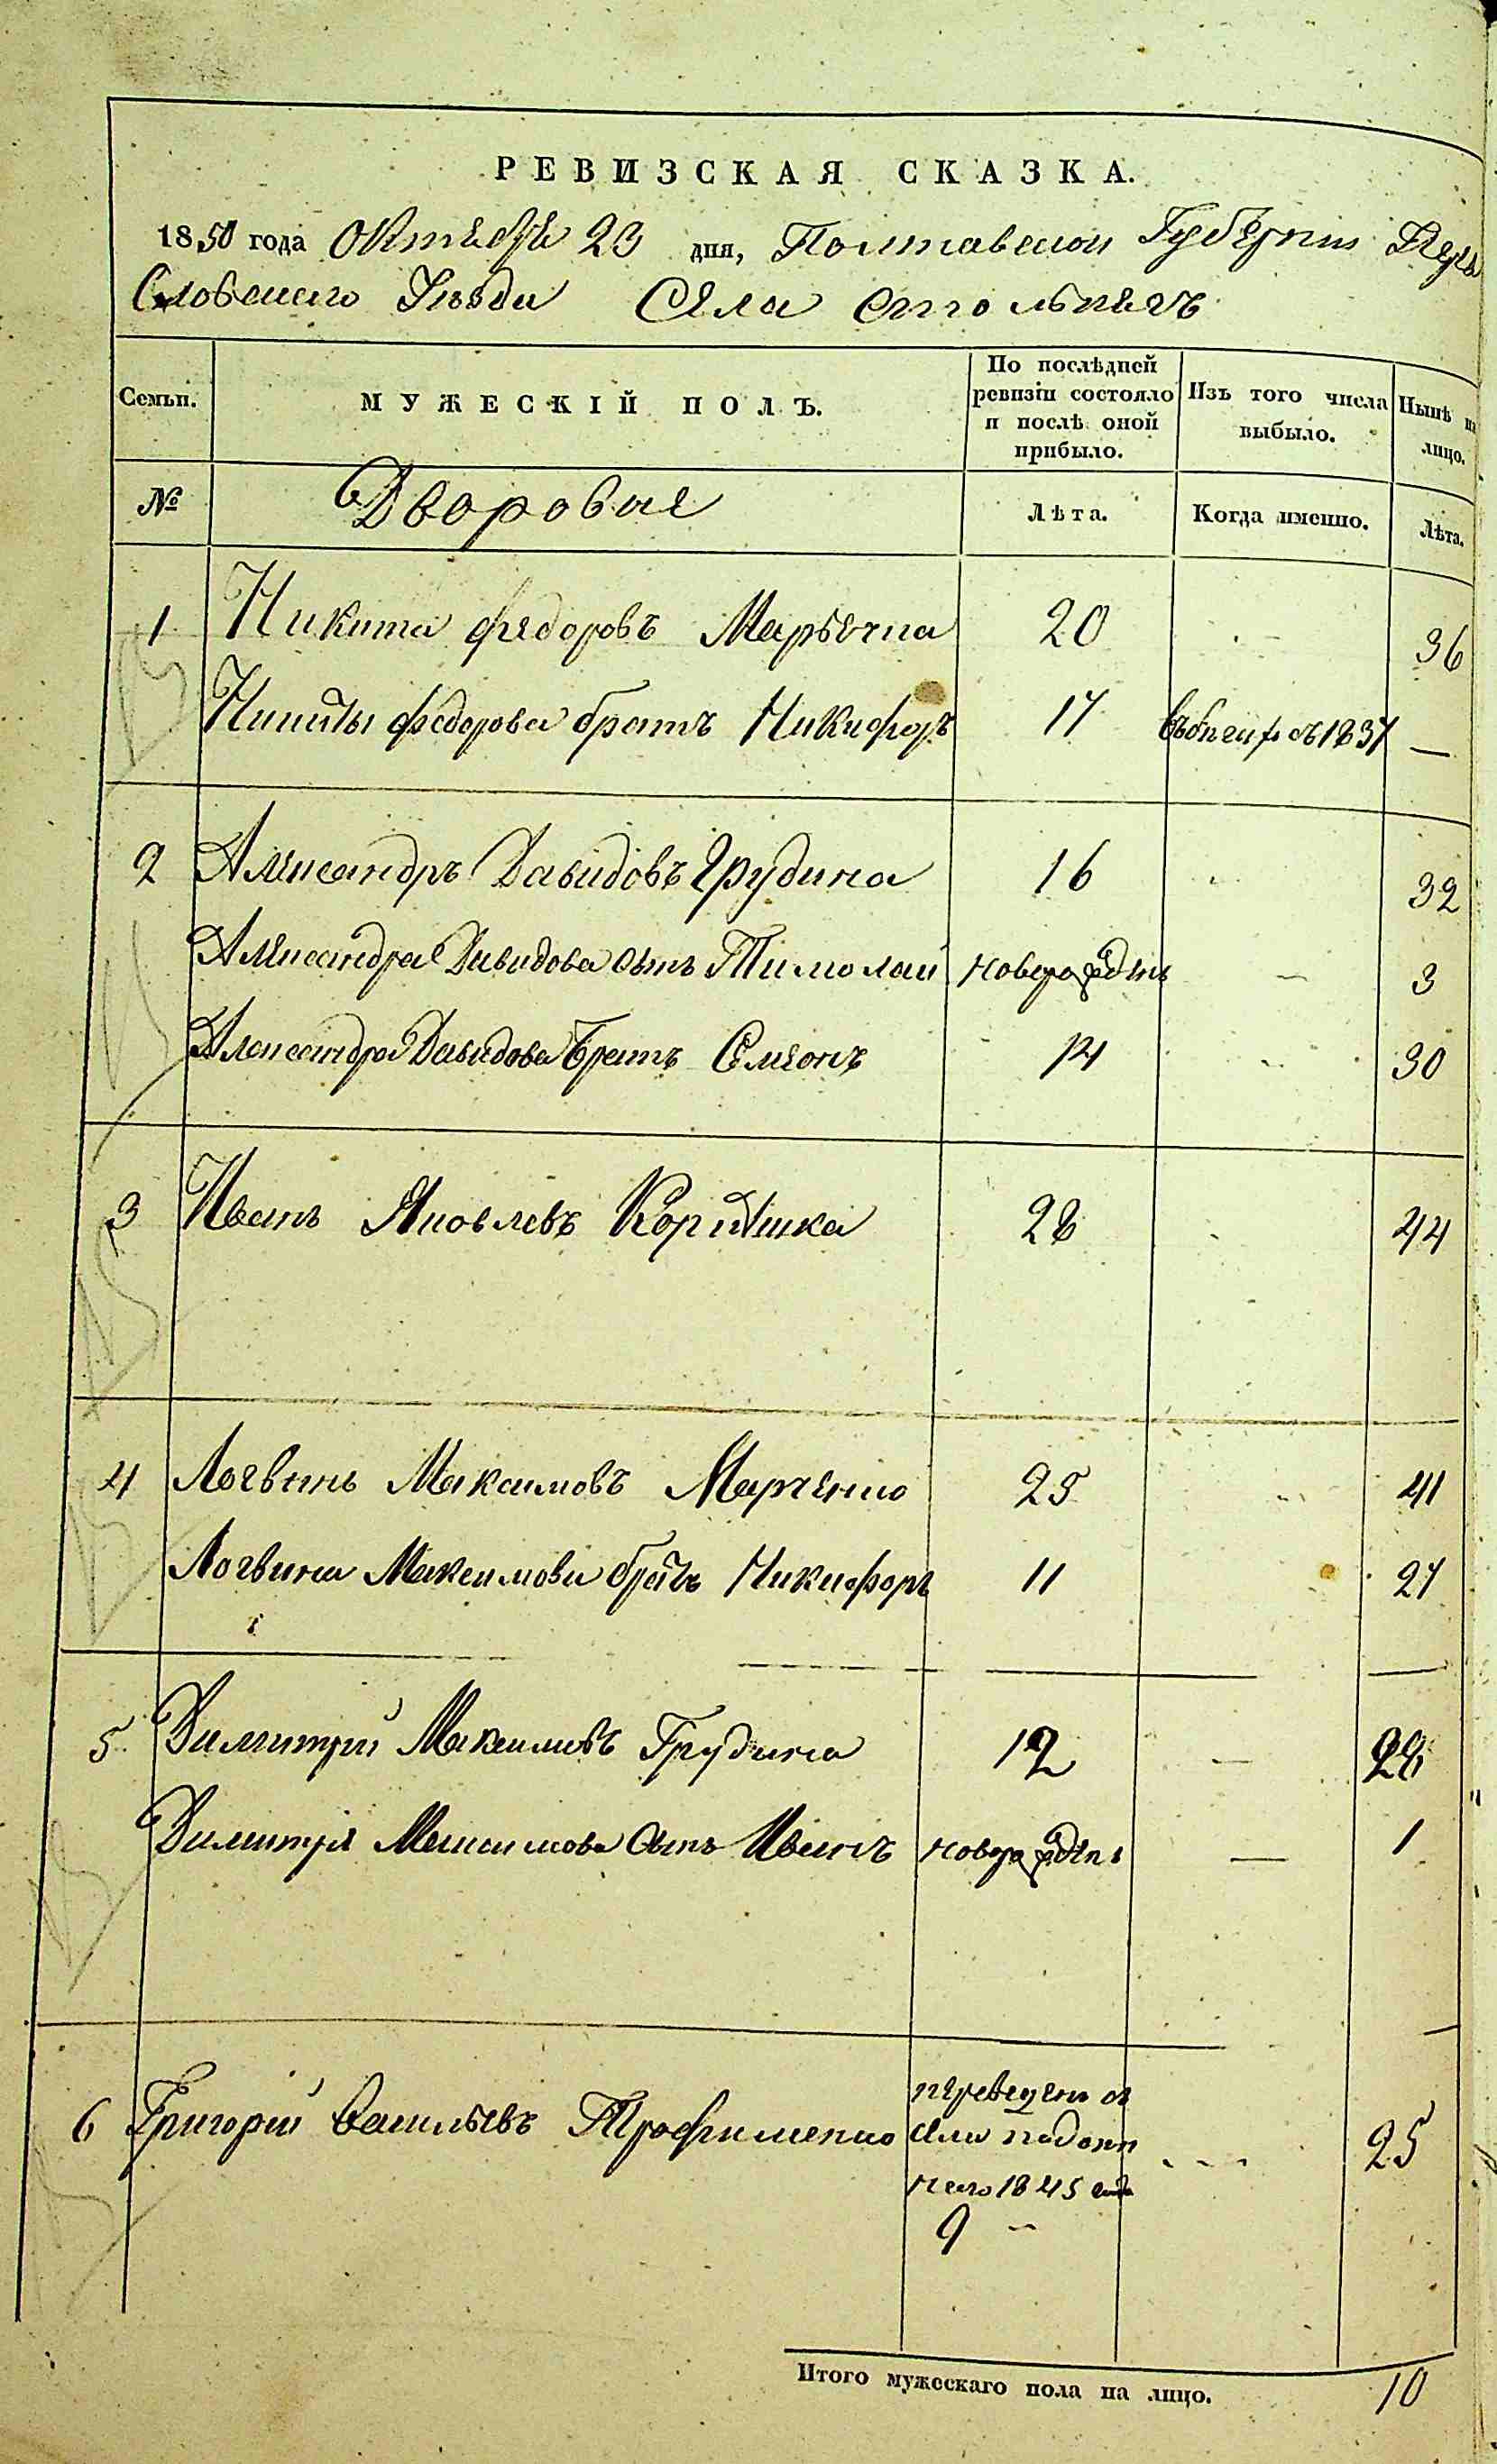 РЕВИЗСКАЯ СКАЗКА.
1850 года Октября 23 дня, Полтавской Губернии
Уезда Села
Семьи.
МУЖЕСКІЙ ПОЛЪ.
По послѣдней ревизіи состояло и послѣ оной прибыло.
Изъ того числа выбыло.
Нынѣ на лицо.
№
Дворовые
Лѣта.
Когда именно.
Лѣта.
1 Никита Федоровъ 20 36
Никиты Федорова братъ Никифоръ 17 съ 1837 —
2 Александръ Давидовъ Грудина 16 32
Александра Давидова сынъ новорожденъ — 3
Александра Давидова Братъ Семенъ 14 30
3 Иванъ Яковлевъ 28 44
4 Логвинъ Максимовъ Марченко 25 41
Логвина Максимова братъ Никифоръ 11 27
5 Димитрий Максимовъ Грудина 12 — 28
Димитрия Максимова Сынъ Иванъ новорожденъ — 1
6 Григорий Васильевъ Трофименко переведенъ съ
села
1845 года
9 25
Итого мужескаго пола на лицо. 10